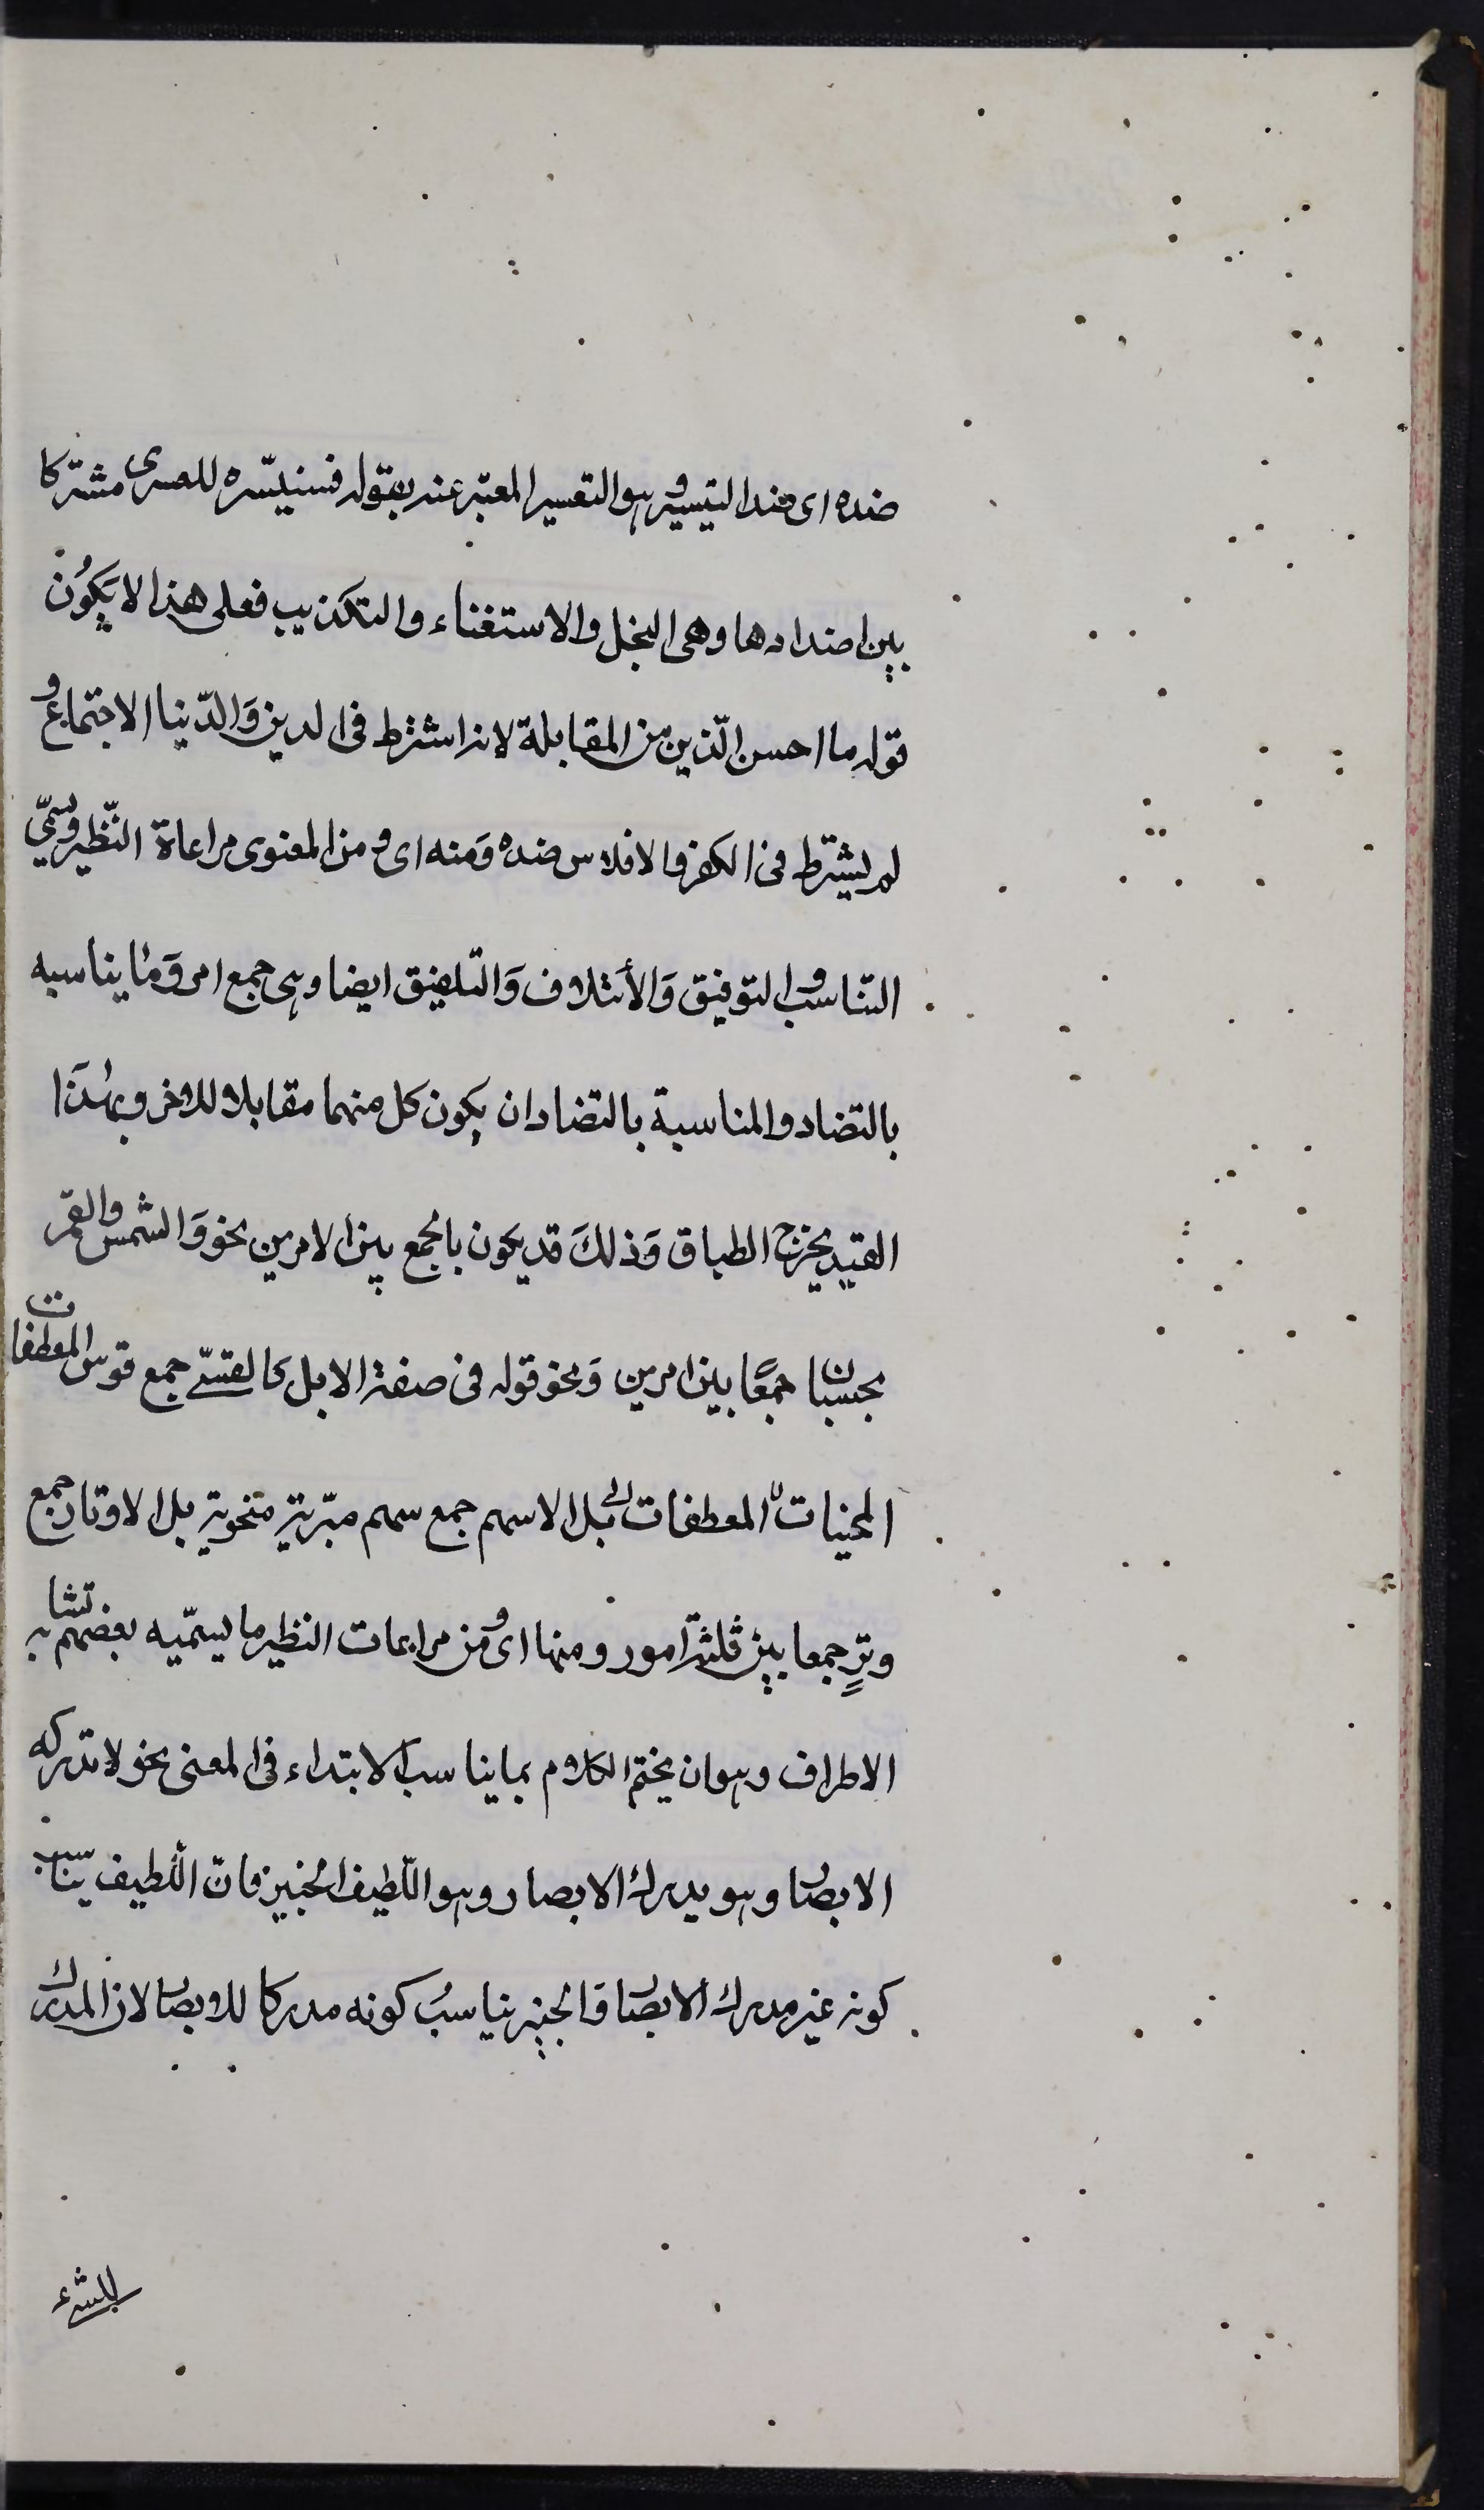 ضده اى ضد التيسير وهو التعسير المعبّر عنه بقوله فسنيسّره للعسرى مشتركا
بين اضدادها وهى البخل والاستغناء والتكذيب فعلى هذا لا يَكوُن
قوله ما احسن الّدين من المقابلة لانه اشترط فى الدين وَالدّنيا الاجتماع و
لم يشترط فى الكفر والافلاس ضده وَمنه اى ومن المعنوى مراعاة النّظير ويسمّى
التناسب والتوفيق وَالأئتلاف وَالتلفيق ايضا وهى جمع امر وَما يناسبه
بالتضاد والمناسبة بالتضاد ان يكون كل منهما مقابلا للاخر وبهٰذَا
القيد يخرج الطباق وَذلكَ قد يكون بالجمع بين الامرين نحو وَالشمس والقمر
بحسبان جمعًا بين امرين وَنحو قوله فى صفة الابل كالقسّى جمع قوس المعطفات
المحنيات المعطفات بل الاسهم جمع سهم مبّرية منحوتة بل الاوتار جمع
وترٍ جمعا بين ثلثة امور ومنها اى ومن مراعات النظير ما يسمّيه بعضهم تشابه
الاطراف وهو ان يختم الكلام بما يناسب الابتداء فى المعنى نحو لا تدركه
الابصار وهو يدرك الابصار وهو اللّطيف الخبير فانّ اللّطيف يناسب
كونه غير مدرك الابصار وَالخبير يناسبُ كونه مدركا للابصار لان المدرك
للشئ